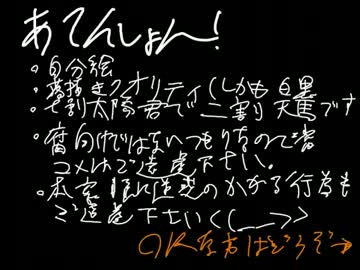 あてんしょん!
・自分絵
・落描きクオリティ(しかも白黒
・七割太陽君で二割天馬です
・腐向けではないつもりなので腐
コメはご遠慮下さい。
・本家様に迷惑のかかる行為も
ご遠慮下さい<(_ _)>
OKな方はどうぞ→